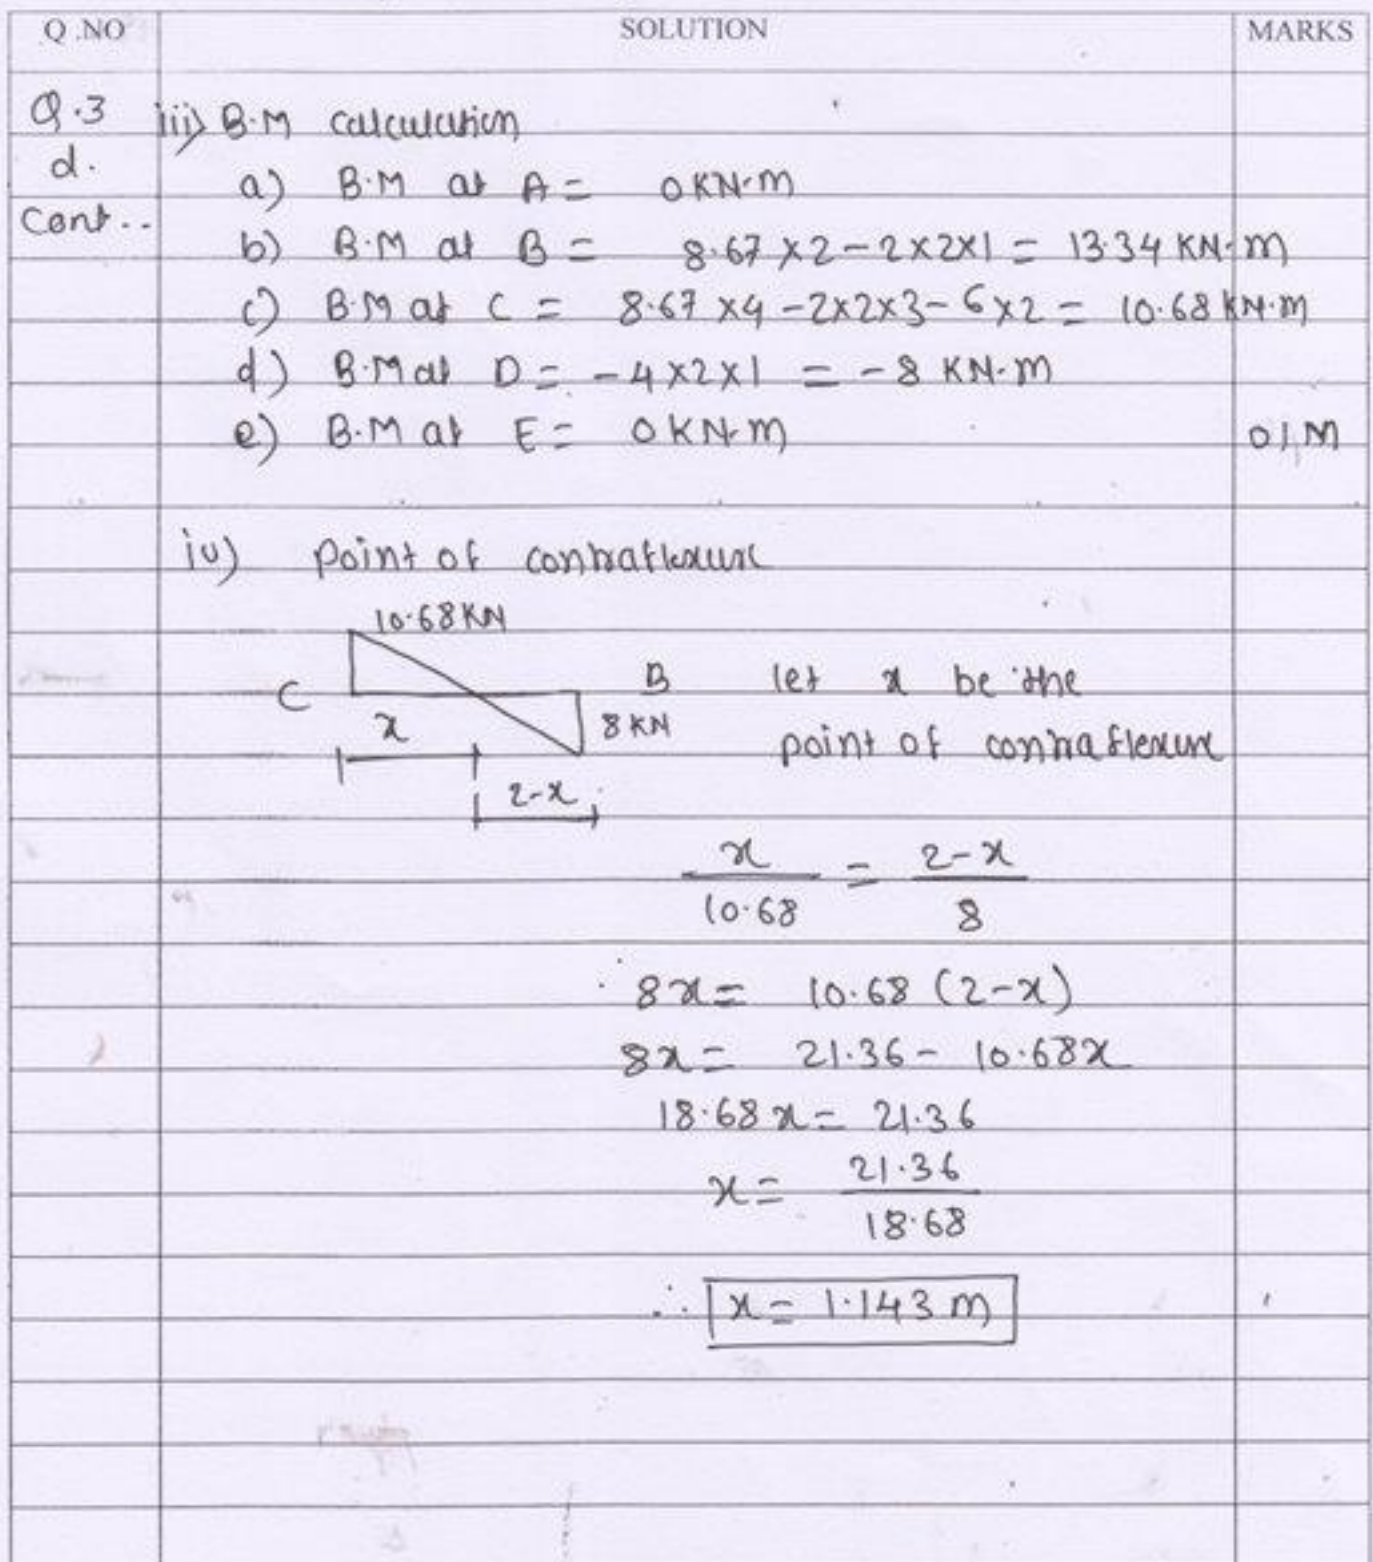 Q.NO SOLUTION MARKS
Q.3 iii) B.M calculation
d.
a) B.M at A = 0 KN.m
Cont..
b) B.M at B = 8.67 x 2 - 2x2x1 = 13.34 KN.m
c) B.M at C = 8.67 x4 - 2x2x3 - 6x2 = 10.68 KN.m
d) B.M at D = - 4x2x1 = - 8 KN.m
e) B.M at E = 0 KN.m 01 M
iv) Point of contraflexure
10.68 KN
C B let x be the
x 8 KN point of contraflexure
2-x
x/10.68 = 2-x/8
8x = 10.68 (2-x)
8x = 21.36 - 10.68x
18.68 x = 21.36
x = 21.36/18.68
∴ x = 1.143 m